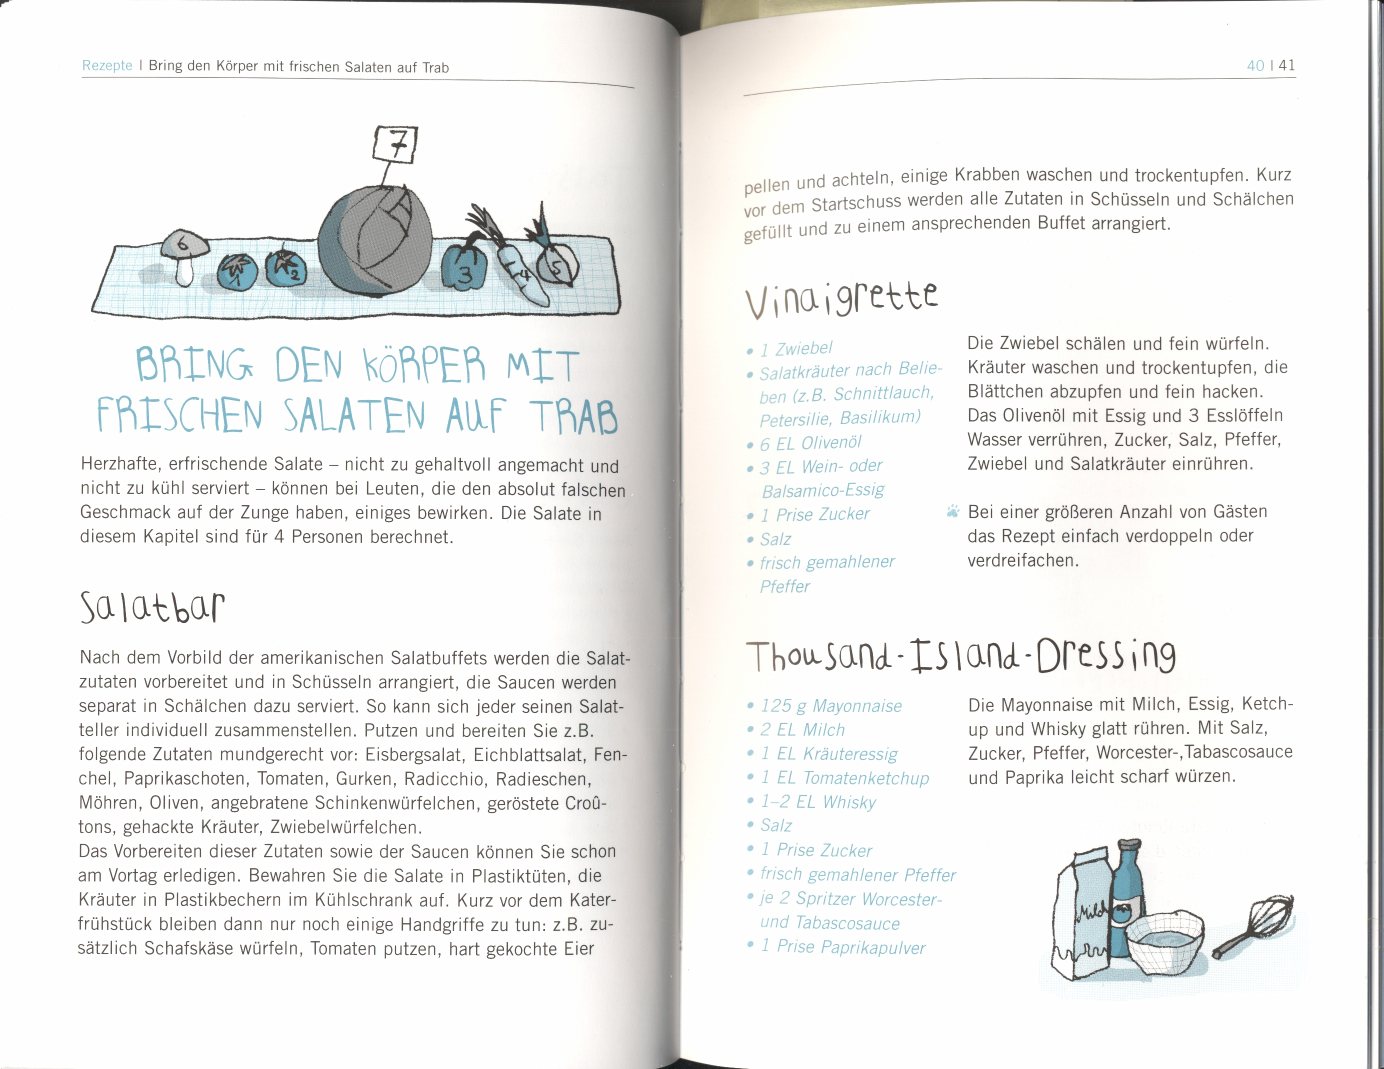 Rezepte | Bring den Körper mit frischen Salaten auf Trab
7
6
1
2
3
4
5
BRING DEN KÖRPER MIT
FRISCHEN SALATEN AUF TRAB
Herzhafte, erfrischende Salate – nicht zu gehaltvoll angemacht und
nicht zu kühl serviert – können bei Leuten, die den absolut falschen
Geschmack auf der Zunge haben, einiges bewirken. Die Salate in
diesem Kapitel sind für 4 Personen berechnet.
Salatbar
Nach dem Vorbild der amerikanischen Salatbuffets werden die Salat-
zutaten vorbereitet und in Schüsseln arrangiert, die Saucen werden
separat in Schälchen dazu serviert. So kann sich jeder seinen Salat-
teller individuell zusammenstellen. Putzen und bereiten Sie z.B.
folgende Zutaten mundgerecht vor: Eisbergsalat, Eichblattsalat, Fen-
chel, Paprikaschoten, Tomaten, Gurken, Radicchio, Radieschen,
Möhren, Oliven, angebratene Schinkenwürfelchen, geröstete Croû-
tons, gehackte Kräuter, Zwiebelwürfelchen.
Das Vorbereiten dieser Zutaten sowie der Saucen können Sie schon
am Vortag erledigen. Bewahren Sie die Salate in Plastiktüten, die
Kräuter in Plastikbechern im Kühlschrank auf. Kurz vor dem Kater-
frühstück bleiben dann nur noch einige Handgriffe zu tun: z.B. zu-
sätzlich Schafskäse würfeln, Tomaten putzen, hart gekochte Eier
40 | 41
pellen und achteln, einige Krabben waschen und trockentupfen. Kurz
vor dem Startschuss werden alle Zutaten in Schüsseln und Schälchen
gefüllt und zu einem ansprechenden Buffet arrangiert.
Vinaigrette
• 1 Zwiebel
• Salatkräuter nach Belie-
ben (z.B. Schnittlauch,
Petersilie, Basilikum)
• 6 EL Olivenöl
• 3 EL Wein- oder
Balsamico-Essig
• 1 Prise Zucker
• Salz
• frisch gemahlener
Pfeffer
Die Zwiebel schälen und fein würfeln.
Kräuter waschen und trockentupfen, die
Blättchen abzupfen und fein hacken.
Das Olivenöl mit Essig und 3 Esslöffeln
Wasser verrühren, Zucker, Salz, Pfeffer,
Zwiebel und Salatkräuter einrühren.
Bei einer größeren Anzahl von Gästen
das Rezept einfach verdoppeln oder
verdreifachen.
Thousand-Island-Dressing
• 125 g Mayonnaise
• 2 EL Milch
• 1 EL Kräuteressig
• 1 EL Tomatenketchup
• 1–2 EL Whisky
• Salz
• 1 Prise Zucker
• frisch gemahlener Pfeffer
• je 2 Spritzer Worcester-
und Tabascosauce
• 1 Prise Paprikapulver
Die Mayonnaise mit Milch, Essig, Ketch-
up und Whisky glatt rühren. Mit Salz,
Zucker, Pfeffer, Worcester-,Tabascosauce
und Paprika leicht scharf würzen.
Milch